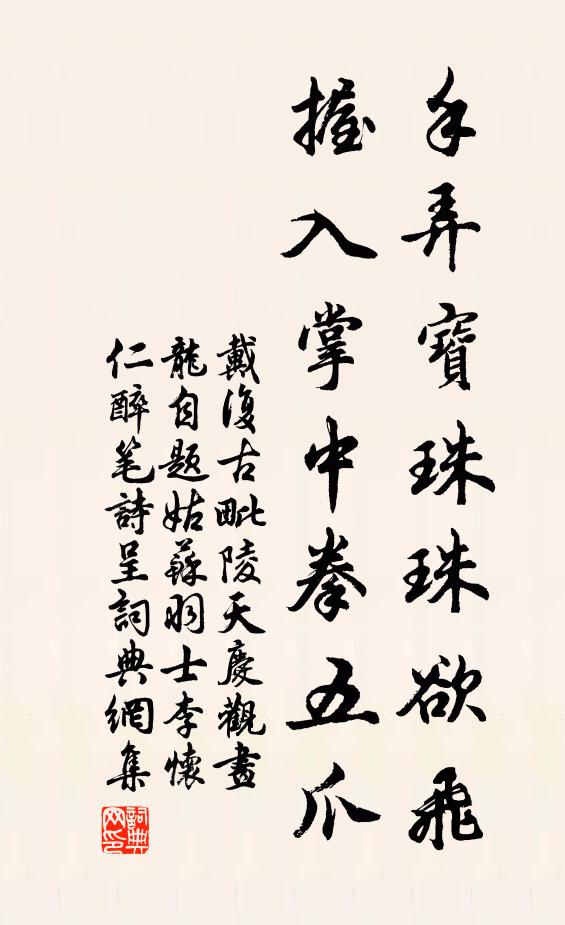 手弄寶珠珠欲飛
握入掌中拳五爪
戴復古毗陵天慶觀畫
龍自題姑蘇羽士李懷
仁醉笔詩呈詞典網集
詞典
网印